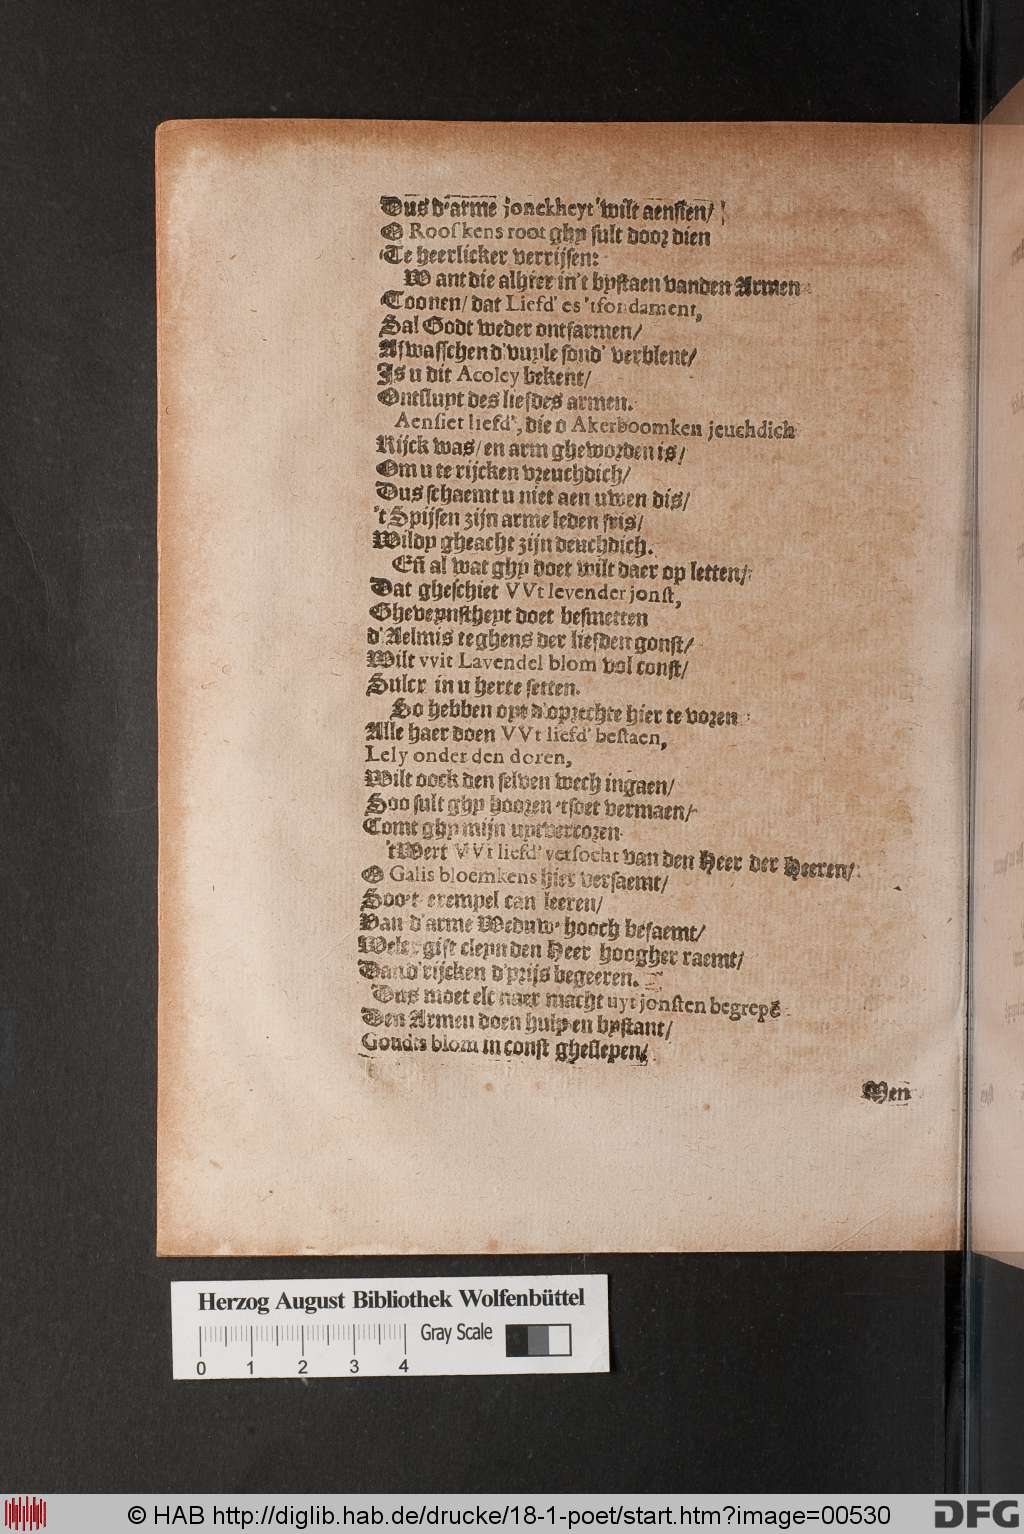 Dus d'arme jonckheyt wilt aensien/
O Rooskens root ghy sult door dien
Te heerlicker verrijsen:
Want die alhier in't bystaen vanden Armen
Toonen/ dat Liefd' es 'tfondament,
Sal Godt weder ontfarmen/
Afwasschen d'vuyle sond' verblent/
Is u dit Acoley bekent/
Ontsluyt des liefdes armen.
Aensiet liefd', die o Akerboomken jeuchdich
Rijck was/ en arm gheworden is/
Om u te rijcken vreuchdich/
Dus schaemt u niet aen uwen dis/
't Spijsen zijn arme leden fris/
Wildy gheacht zijn deuchdich.
Eñ al wat ghy doet wilt daer op letten/
Dat gheschiet VVt levender jonst,
Gheveynstheyt doet besmetten
d'Aelmis teghens der liefden gonst/
Wilt vvit Lavendel blom vol const/
Sulcx in u herte setten.
So hebben oyt d'oprechte hier te voren
Alle haer doen VVt liefd' bestaen,
Lely onder den doren,
Wilt oock den selven wech ingaen/
Soo sult ghy hooren 'tsoet vermaen/
Comt ghy mijn uytvercoren
't Wert VVt liefd' versocht van den Heer der Heeren/
O Galis bloemkens hier versaemt/
Soo't exempel can leeren/
Van d'arme Weduw' hooch befaemt/
Welcx gift cleyn den Heer hoogher raemt/
Dan d'rijcken d'prijs begeeren.
Dus moet elc naer macht uyt jonsten begrepē
Den Armen doen hulp en bystant/
Goudts blom in const gheslepen/
Men
Herzog August Bibliothek Wolfenbüttel
Gray Scale
0 1 2 3 4
© HAB http://diglib.hab.de/drucke/18-1-poet/start.htm?image=00530
DFG